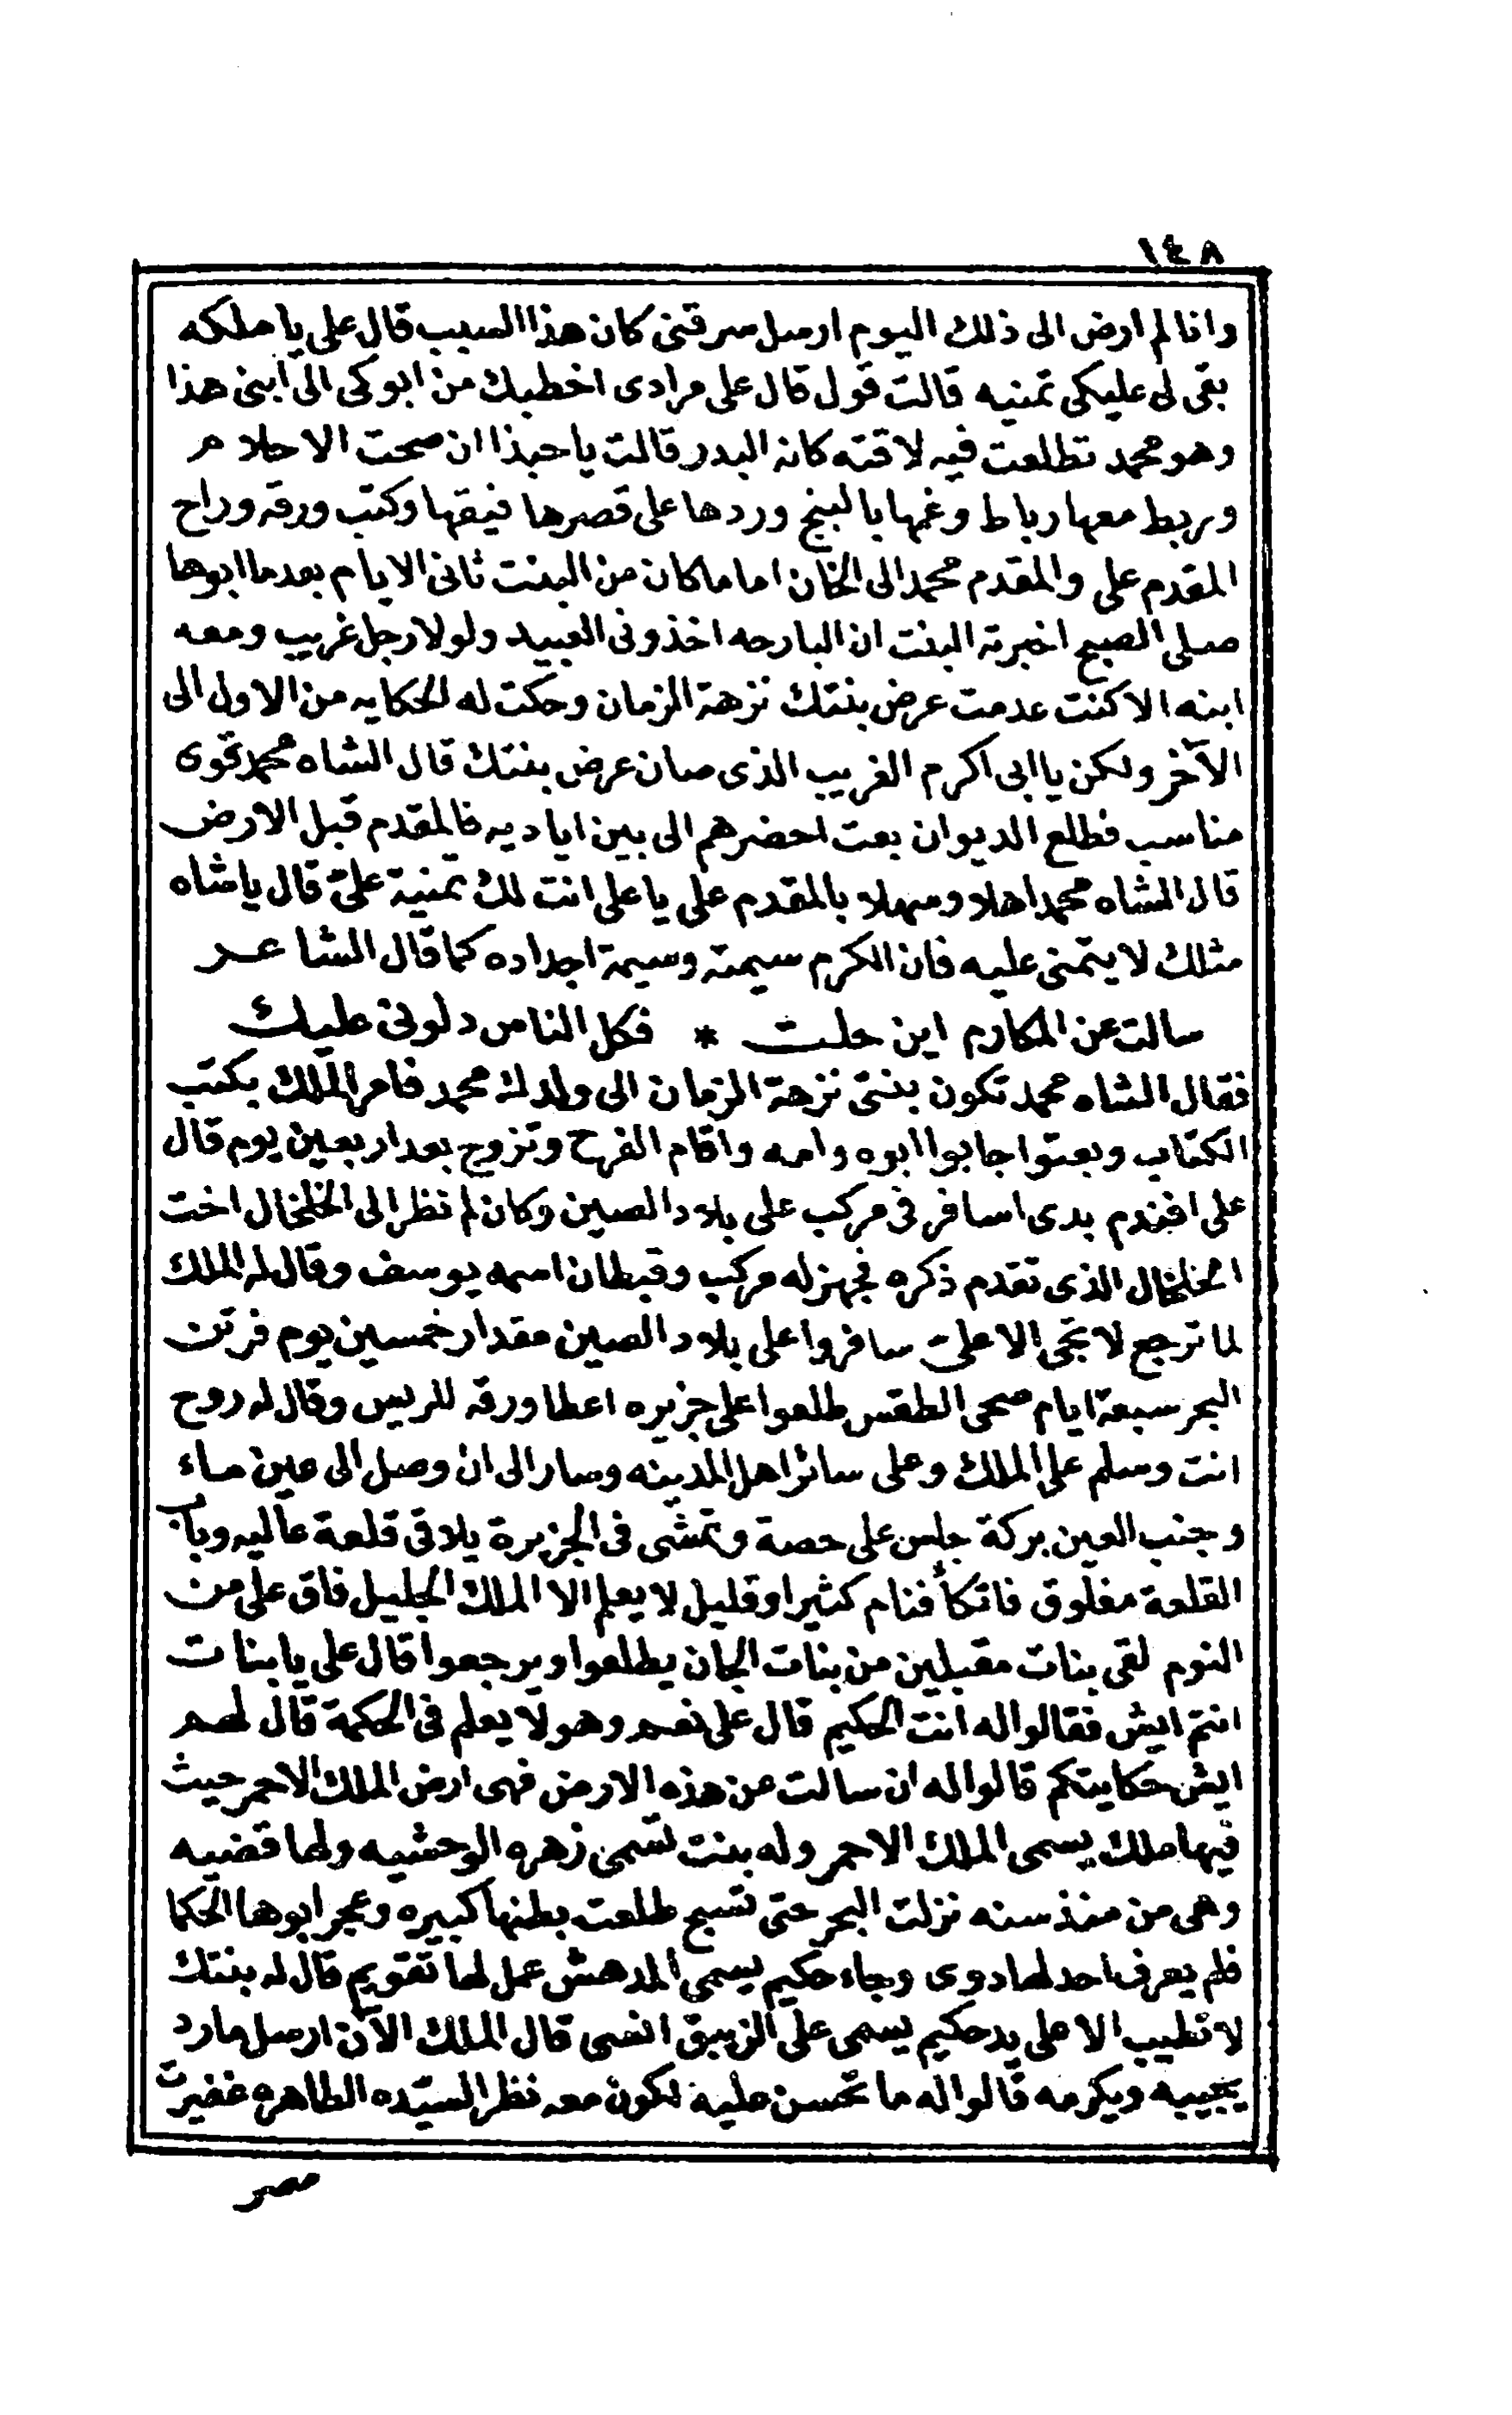 ١٤٨
وانا لم ارض الى ذلك اليوم ارسل سرقنى كان هذا السبب قال على يا ملكه
بقى لى عليكى تمنيه قالت قول قال على مرادى اخطبك من ابوكى الى ابنى هذا
وهو محمد تطلعت فيه لاقته كانه البدر قالت يا حبذا ان صحت الاحلام
وربط معها رباط وغمها بالبنج وردها على قصرها فيقها وكتب ورقه وراح
المقدم على والمقدم محمد الى الخان اما ما كان من البنت ثانى الايام بعد ما ابوها
صلى الصبح اخبرته البنت ان البارحه اخذونى العبيد ولولا رجل غريب ومعه
ابنه الا كنت عدمت عرض بنتك نزهة الزمان وحكت له الحكايه من الاول الى
الآخر ولكن يا ابى اكرم الغريب الذى صان عرض بنتك قال الشاه محمد تقوى
مناسب فطلع الديوان بعت احضرهم الى بين اياديه فالمقدم قبل الارض
قال الشاه محمد اهلا وسهلا بالمقدم على يا على انت لك تمنية علىّ قال يا شاه
مثلك لا يتمنى عليه فان الكرم سيمته وسيمة اجداده كما قال الشاعر
سالت عن المكارم اين حلت * فكل الناس دلونى عليك
فقال الشاه محمد تكون بنتى نزهة الزمان الى ولدك محمد فامر الملك بكتب
الكتاب وبعتوا جابوا ابوه وامه واقام الفرح وتزوج بعد اربعين يوم قال
على افندم بدى اسافر فى مركب على بلاد الصين وكان لم نظر الى الخلخال اخت
الخلخال الذى تقدم ذكره فجهز له مركب وقبطان اسمه يوسف وقال له الملك
لما ترجع لا تجى الا علىّ سافروا على بلاد الصين مقدار خمسين يوم فرتنت
البحر سبعة ايام صحى الطقس طلعوا على جزيره اعطا ورقه للريس وقال له روح
انت وسلم على الملك وعلى سائر اهل المدينه وسار الى ان وصل الى عين ماء
وجنب العين بركة جلس على حصة وتمشى فى الجزيرة يلاقى قلعة عاليه وباب
القلعة مغلوق فاتكأ فنام كثيرا وقليل لا يعلم الا الملك الجليل فاق على من
النوم لقى بنات مقبلين من بنات الجان يطلعوا ويرجعوا قال على يا بنات
انتم ايش فقالوا له انت الحكيم قال على نعم وهو لا يعلم فى الحكمة قال لهم
ايش حكايتكم قالوا له ان سالت عن هذه الارض فهى ارض الملك الاحمر حيث
فيها ملك يسمى الملك الاحمر وله بنت تسمى زهره الوحشيه ولها قضيه
وهى من منذ سنه نزلت البحر حتى تسبح طلعت بطنها كبيره وعجز ابوها الحكما
فلم يعرف احد لها دوى وجاء حكيم يسمى المدهش عمل لها تقويم قال له بنتك
لا تطيب الا على يد حكيم يسمى على الزيبق انسى قال الملك الآن ارسل مارد
يجيبه ويكرمه قالوا له ما تحسن عليه لكون معه نظر السيّده الطاهره غفيرت
مصر